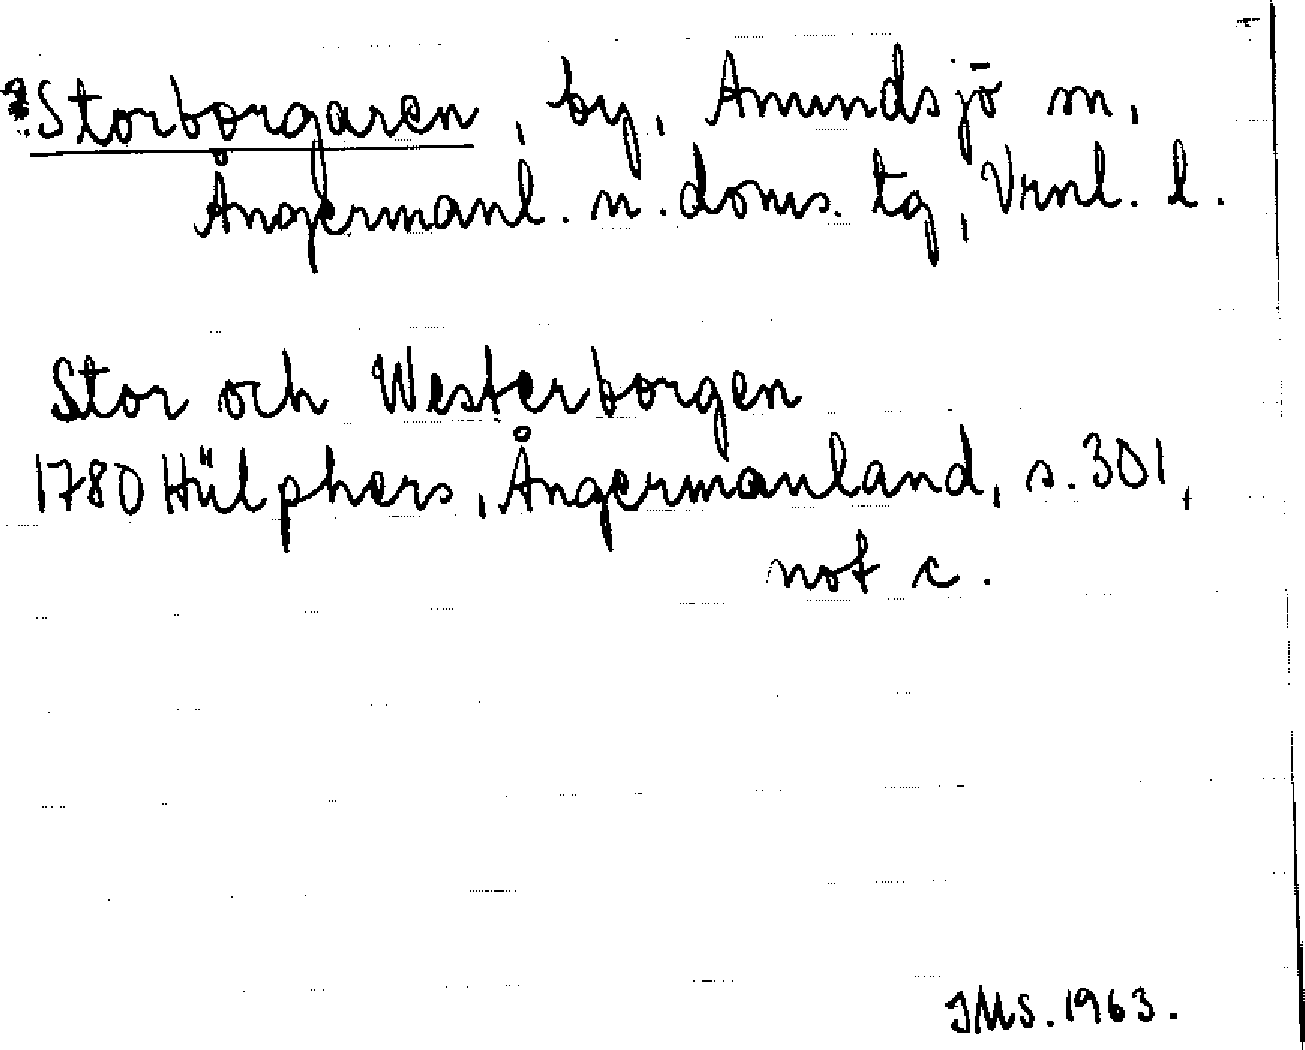 ?Storborgaren, by, Amundsjö sn,
Ångermanl. n. doms. tg, Vrnl. l.
Stor och Westerborgen
1780 Hülphers, Ångermanland, s. 301,
not c.
JMS. 1963.